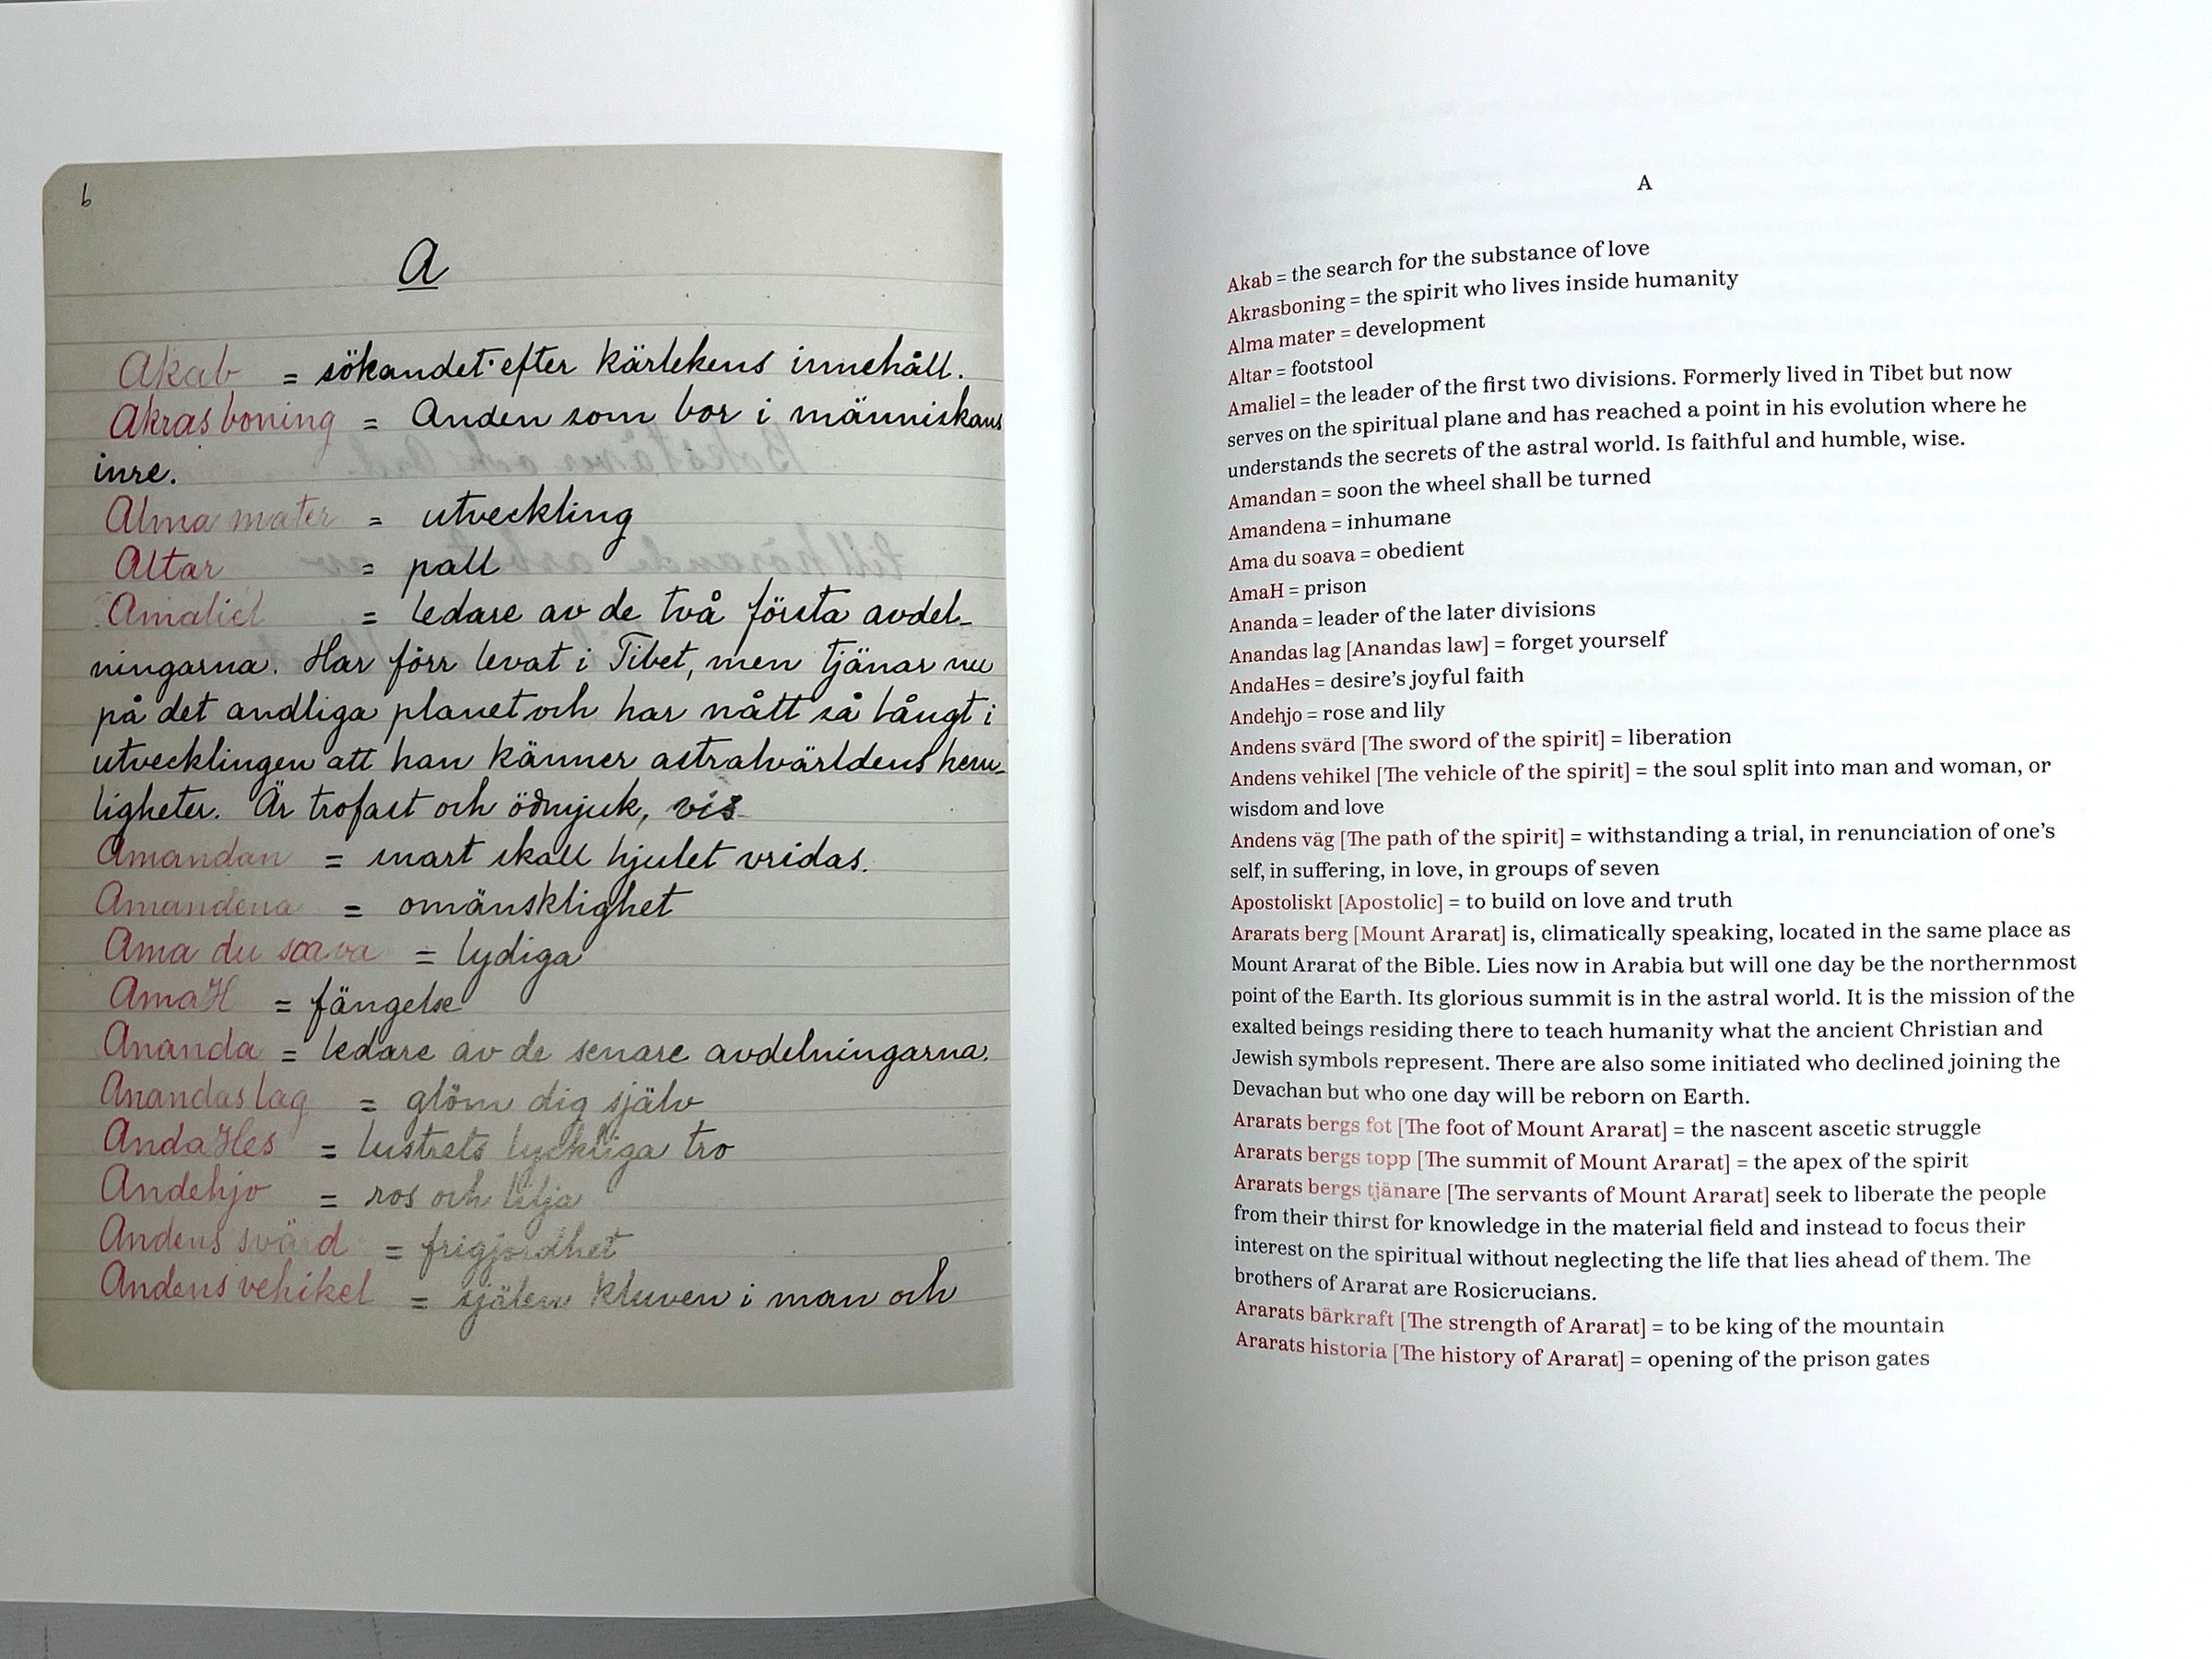 6
A
Akab = sökandet efter kärlekens innehåll.
Akrasboning = Anden som bor i människans
inre.
Alma mater = utveckling
Altar = pall
Amaliel = ledare av de två första avdel-
ningarna. Har förr levat i Tibet, men tjänar nu
på det andliga planet och har nått så långt i
utvecklingen att han känner astralvärldens hem-
ligheter. Är trofast och ödmjuk, vis
Amandan = snart skall hjulet vridas.
Amandena = omänsklighet
Ama du soava = lydiga
AmaH = fängelse
Ananda = ledare av de senare avdelningarna.
Anandas lag = glöm dig själv
AndaHes = lustrets lyckliga tro
Andehjo = ros och lilja
Andens svärd = frigjordhet
Andens vehikel = själen kluven i man och
A
Akab = the search for the substance of love
Akrasboning = the spirit who lives inside humanity
Alma mater = development
Altar = footstool
Amaliel = the leader of the first two divisions. Formerly lived in Tibet but now
serves on the spiritual plane and has reached a point in his evolution where he
understands the secrets of the astral world. Is faithful and humble, wise.
Amandan = soon the wheel shall be turned
Amandena = inhumane
Ama du soava = obedient
AmaH = prison
Ananda = leader of the later divisions
Anandas lag [Anandas law] = forget yourself
AndaHes = desire's joyful faith
Andehjo = rose and lily
Andens svärd [The sword of the spirit] = liberation
Andens vehikel [The vehicle of the spirit] = the soul split into man and woman, or
wisdom and love
Andens väg [The path of the spirit] = withstanding a trial, in renunciation of one's
self, in suffering, in love, in groups of seven
Apostoliskt [Apostolic] = to build on love and truth
Ararats berg [Mount Ararat] is, climatically speaking, located in the same place as
Mount Ararat of the Bible. Lies now in Arabia but will one day be the northernmost
point of the Earth. Its glorious summit is in the astral world. It is the mission of the
exalted beings residing there to teach humanity what the ancient Christian and
Jewish symbols represent. There are also some initiated who declined joining the
Devachan but who one day will be reborn on Earth.
Ararats bergs fot [The foot of Mount Ararat] = the nascent ascetic struggle
Ararats bergs topp [The summit of Mount Ararat] = the apex of the spirit
Ararats bergs tjänare [The servants of Mount Ararat] seek to liberate the people
from their thirst for knowledge in the material field and instead to focus their
interest on the spiritual without neglecting the life that lies ahead of them. The
brothers of Ararat are Rosicrucians.
Ararats bärkraft [The strength of Ararat] = to be king of the mountain
Ararats historia [The history of Ararat] = opening of the prison gates